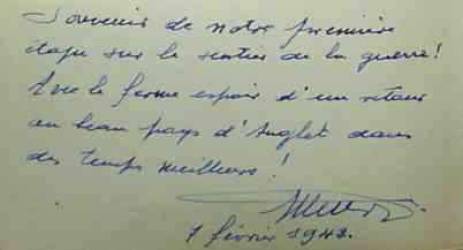 Souvenir de notre première
étape sur le sentier de la guerre!
Avec le ferme espoir d'un retour
au beau pays d'Anglet dans
des temps meilleurs!
1 février 1942.